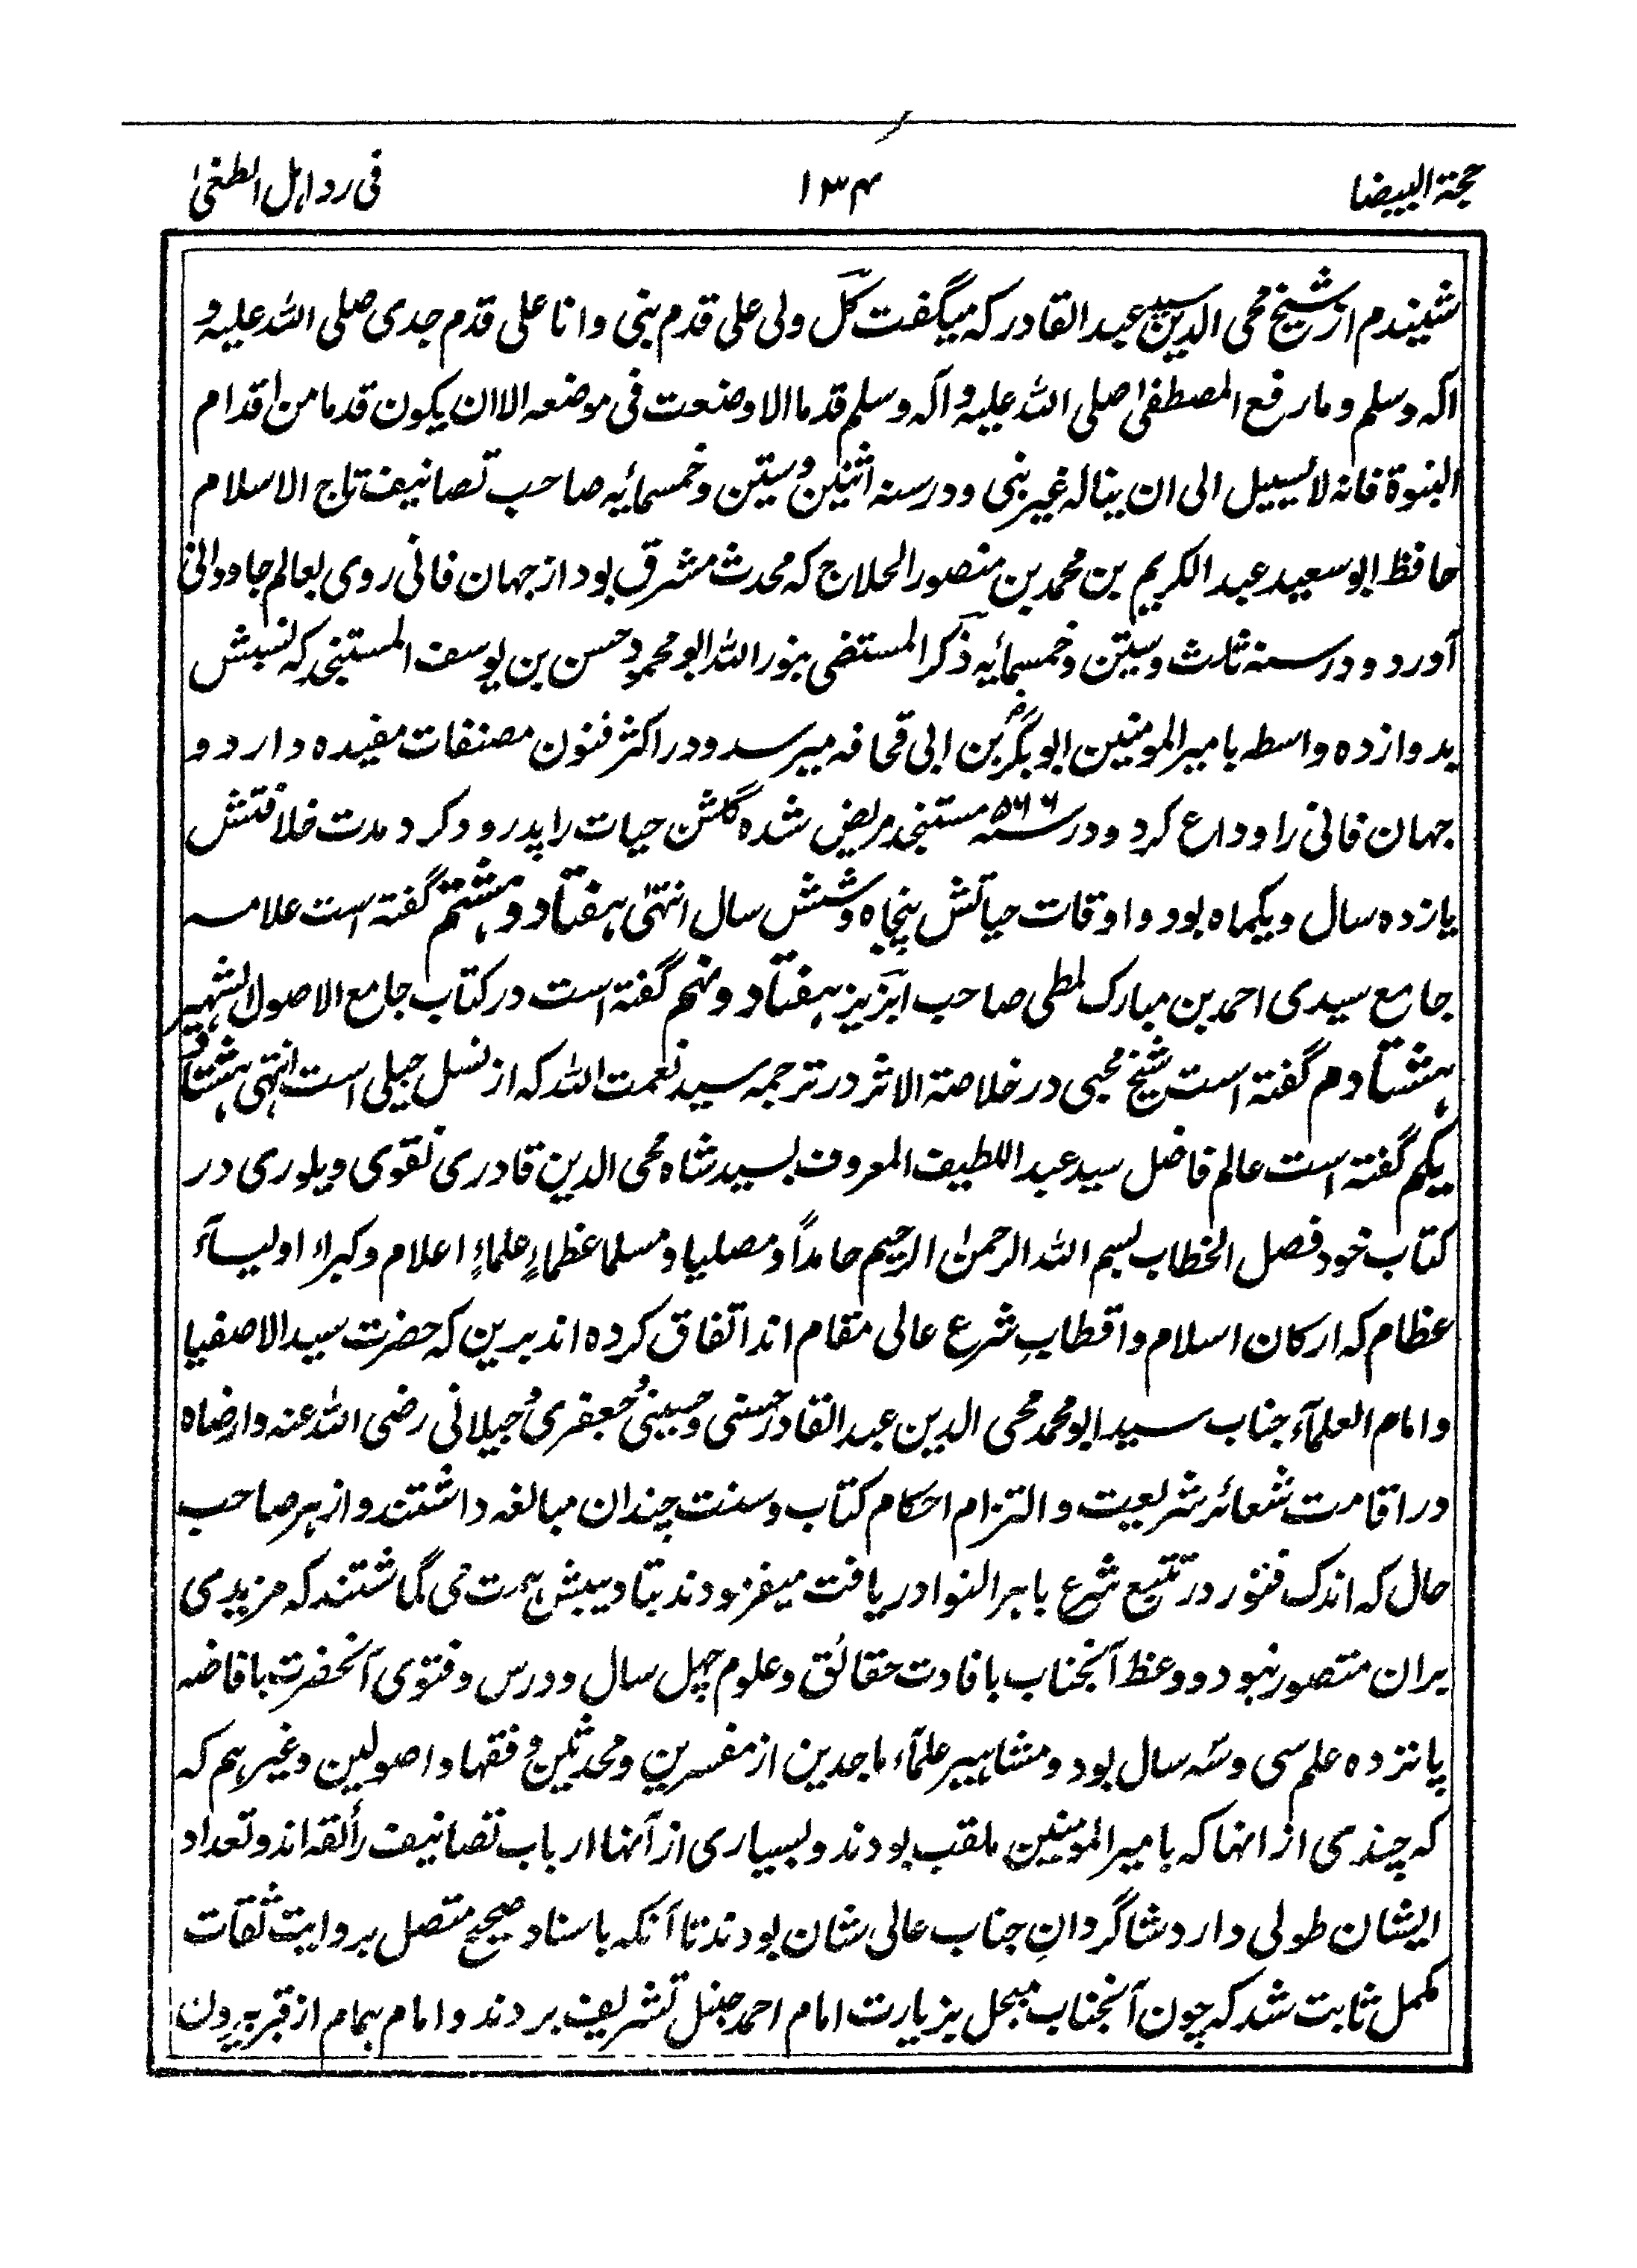 حجة البيضا ۱۳۴ فی رد اہل الطغیٰ
شنیدم از شیخ محی الدین سید عبد القادر کہ میگفت کل ولی علی قدم نبی وانا علی قدم جدی صلی اللہ علیہ و
آلہ وسلم ومارفع المصطفیٰ صلی اللہ علیہ و آلہ وسلم قدما الا وضعت فی موضعہ الا ان یکون قدما من اقدام
النبوۃ فانہ لا سبیل الی ان ینالہ غیر نبی ودر سنہ اثنین وستین وخمسمائیہ صاحب تصانیف تاج الاسلام
حافظ ابو سعید عبد الکریم بن محمد بن منصور الحلاج کہ محدث مشرق بود از جہان فانی روی بعالم جاودانی
آورد ودر سنہ ثلاث وستین وخمسمائیہ ذکر المستضی بنور اللہ ابو محمد حسن بن یوسف المستنجی کہ نسبش
بدوازدہ واسطہ بامیر المومنین ابو بکرؓ بن ابی قحافہ میرسد ودر اکثر فنون مصنفات مفیدہ دارد و
جہان فانی را وداع کرد ودر سنہ ۵۶۶ مستنجد مریض شدہ گلشن حیات را پدرود کرد مدت خلافتش
یازدہ سال ویکماہ بود واوقات حیاتش پنجاہ وشش سال انتہیٰ ہفتاد وہشتم گفتہ است علامہ
جامع سیدی احمد بن مبارک لمطی صاحب ابریز ہفتاد ونہم گفتہ است در کتاب جامع الاصول الشہیر
ہشتادم گفتہ است شیخ محبی در خلاصۃ الاثر در ترجمہ سید نعمت اللہ کہ از نسل جیلی است انتہی ہشتاد
یکم گفتہ است عالم فاضل سید عبد اللطیف المعروف بسید شاہ محی الدین قادری نقوی ویلوری در
کتاب خود فصل الخطاب بسم اللہ الرحمٰن الرحیم حامداً ومصلیا ومسلما عظماءِ علماءِ اعلام وکبراء اولیآء
عظام کہ ارکان اسلام واقطابِ شرع عالی مقام اند اتفاق کردہ اند برین کہ حضرت سید الاصفیا
وامام العلمآء جناب سید ابو محمد محی الدین عبد القادر حسنی وحسینی جعفری جیلانی رضی اللہ عنہ وارضاہ
در اقامت شعائر شریعت والتزام احکام کتاب وسنت چندان مبالغہ داشتند واز ہر صاحب
حال کہ اندک فتور در تتبع شرع باہر النوا دریافت میفرمودند بتادیبش ہمت می گماشتند کہ مزیدی
بران متصور نبود ووعظ آنجناب بافادت حقائق وعلوم چہل سال ودرس وفتوی آنحضرت بافاضہ
پانزدہ علم سی وسہ سال بود ومشاہیر علمآء ماجدین از مفسرین ومحدثین و فقہا واصولین وغیرہم کہ
کہ چندی از انہا کہ بامیر المومنین ملقب بودند وبسیاری از آنہا ارباب تصانیف رائقہ اند وتعداد
ایشان طولی دارد شاگردانِ جناب عالی شان بودند تا آنکہ باسناد صحیح متصل بروایت ثقات
مکمل ثابت شد کہ چون آنجناب مبجل بزیارت امام احمد حنبل تشریف بردند وامام ہمام از قبر بیرون